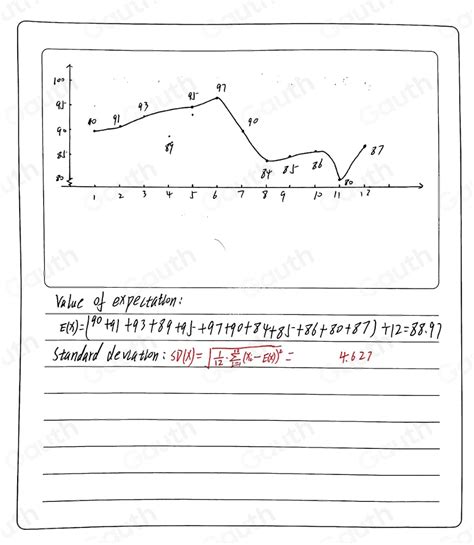 100
97
95
95
93
91
90
90
90
89
87
85
86
85
84
80
80
1 2 3 4 5 6 7 8 9 10 11 12
Value of expectation:
E(X)=(90+91+93+89+95+97+90+84+85+86+80+87)÷12=88.97
Standard deviation: SD(X)=√(1/12·∑(xᵢ-E(X))²= 4.627
Gauth